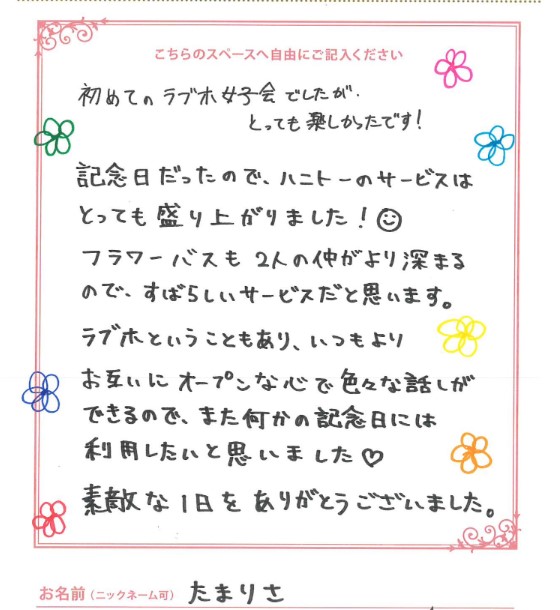 こちらのスペースへ自由にご記入ください
初めての ラブホ女子会でしたが、
とっても楽しかったです!
記念日だったので、ハニトーのサービスは
とっても盛り上がりました!☺
フラワーバスも 2人の仲がより深まる
ので、すばらしいサービスだと思います。
ラブホということもあり、いつもより
お互いに オープンな心で色々な話しが
できるので、また何かの記念日には
利用したいと思いました♡
素敵な1日を ありがとうございました。
お名前(ニックネーム可) たまりさ